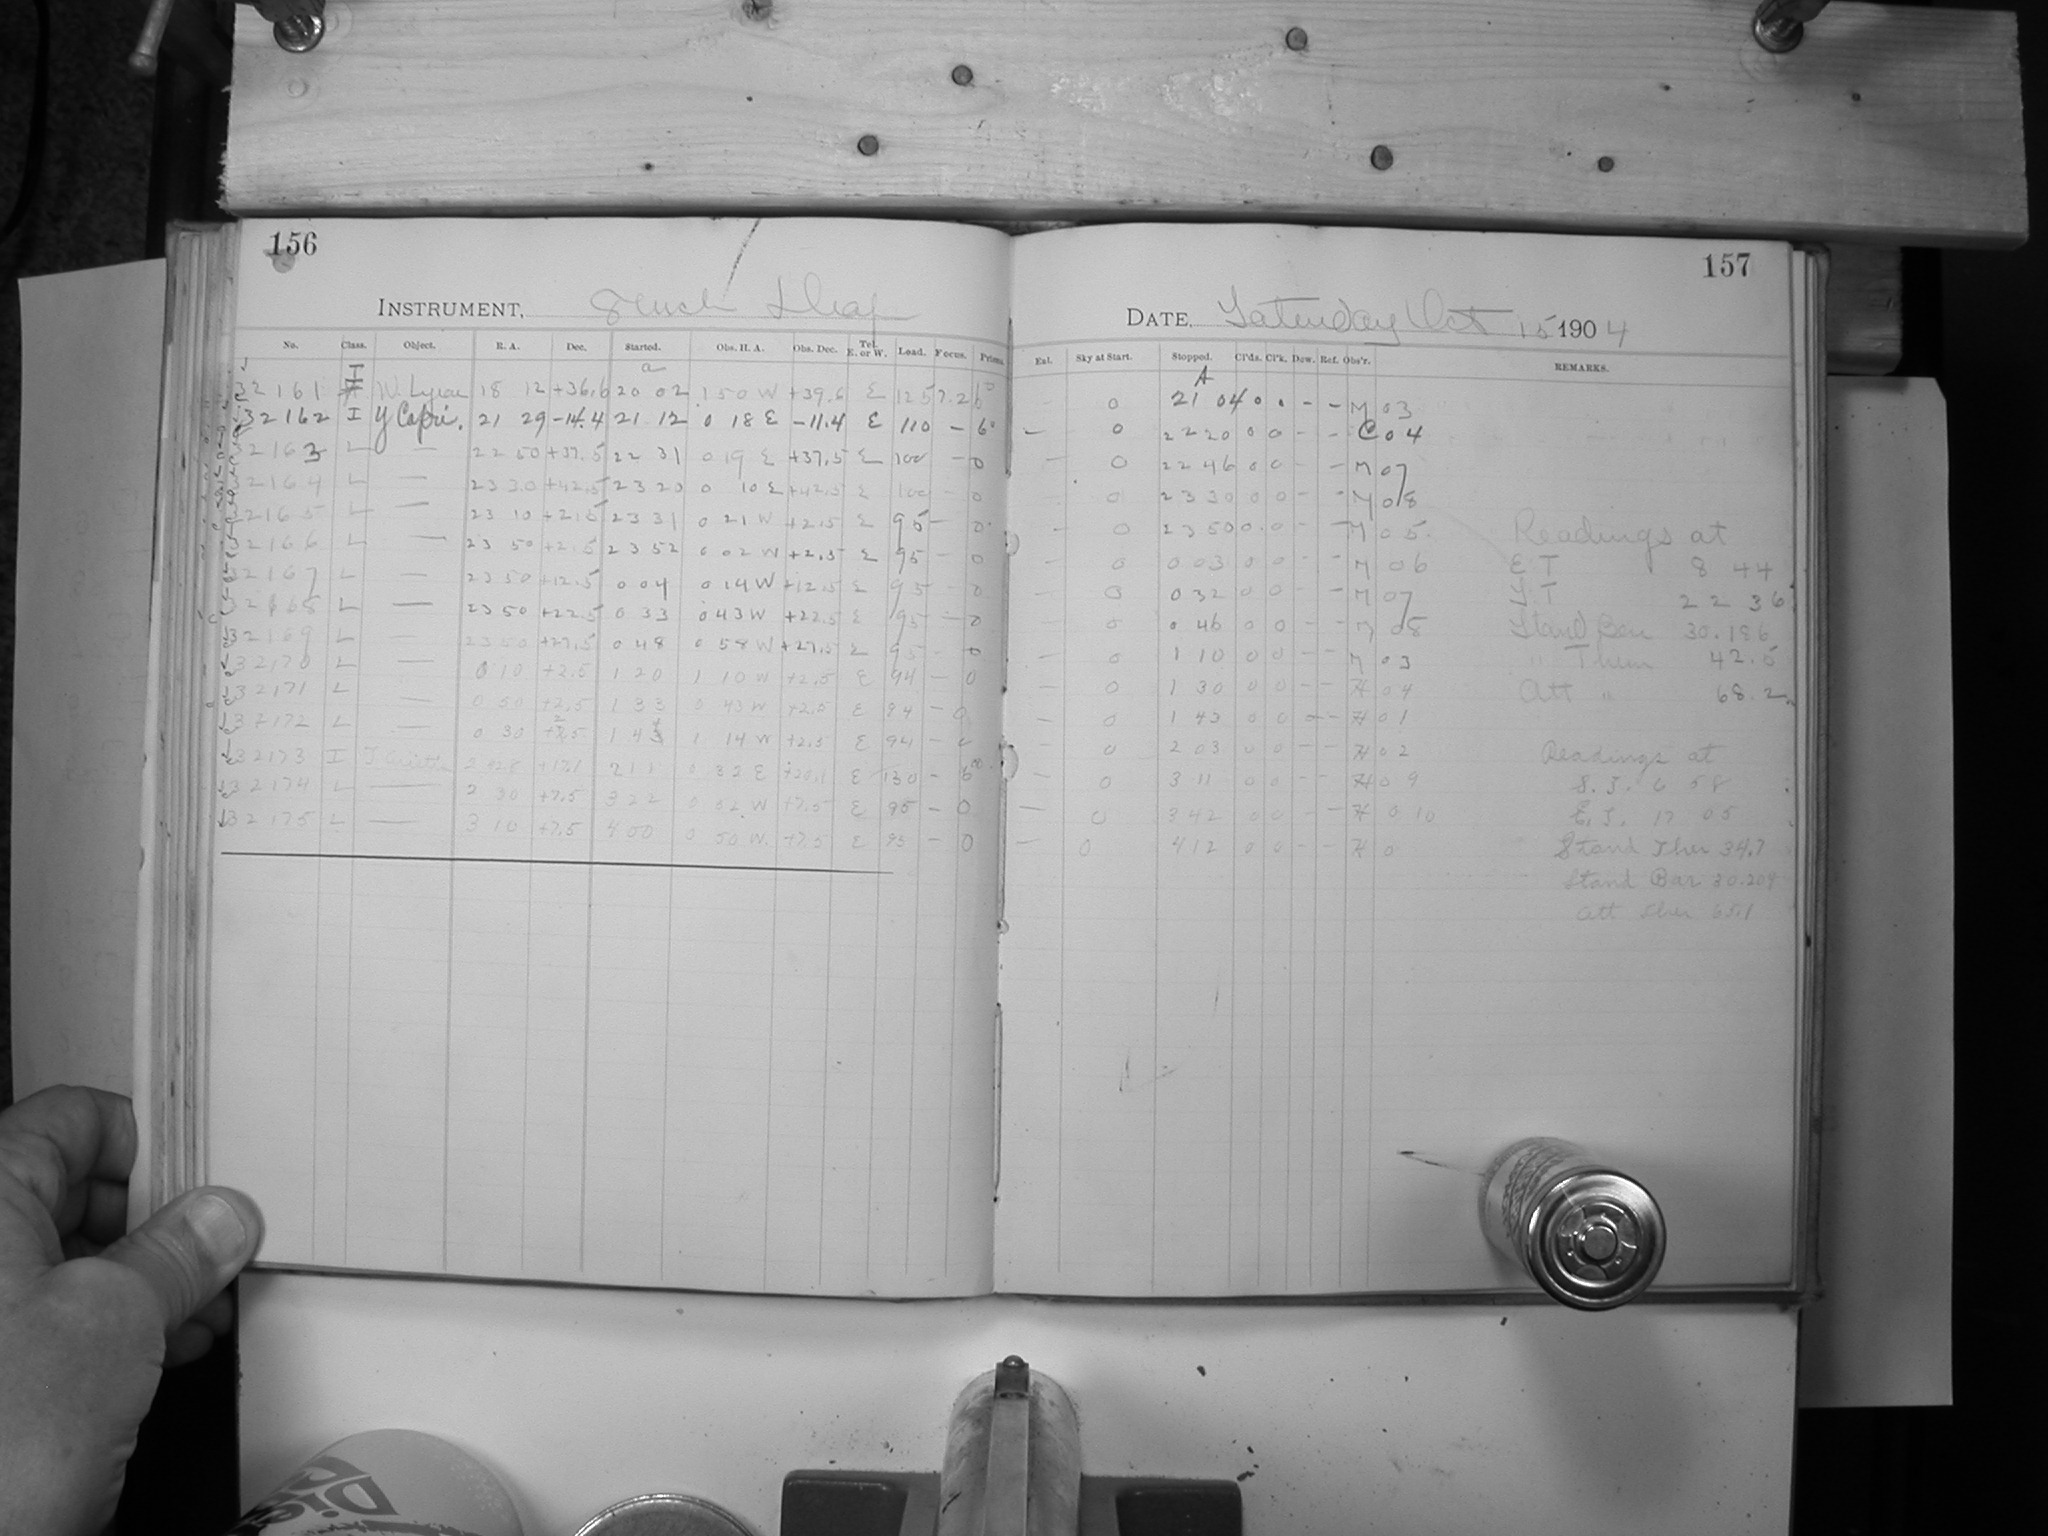 156
157
INSTRUMENT,
DATE, Saturday Oct 15 1904
No. Class. Object. R. A. Dec. Started. Obs. H. A. Obs. Dec. Tel. E. or W. Load. Focus. Prism.
Eal. Sky at Start. Stopped. Cl'ds. Cl'k. Dew. Ref. Obs'r. REMARKS.
32161 I W Lyrae 18 12 +36.6 20 02 1 50 W +39.6 E 125 7.2 6° - 0 21 04 0 . - - M 03
32162 I Y Capri. 21 29 -14.4 21 12 0 18 E -11.4 E 110 - 6° - 0 22 20 0 0 - - C 04
32163 L — 22 50 +37.5 22 31 0 19 E +37.5 E 100 - 0 - 0 22 46 0 0 - - M 07
32164 L — 23 30 +42.5 23 20 0 10 E +42.5 E 100 - 0 - 0 23 30 0 0 - - M 08
32165 L — 23 10 +2.5 23 31 0 21 W +2.5 E 95 - 0 - 0 23 50 0 0 - - M 05
32166 L — 23 50 +2.5 23 52 0 02 W +2.5 E 95 - 0 - 0 0 03 0 0 - - M 06
32167 L — 23 50 +12.5 0 04 0 14 W +12.5 E 95 - 0 - 0 0 32 0 0 - - M 07
32168 L — 23 50 +22.5 0 33 0 43 W +22.5 E 95 - 0 - 0 0 46 0 0 - - M 08
32169 L — 23 50 +27.5 0 48 0 58 W +27.5 E 95 - 0 - 0 1 10 0 0 - - M 03
32170 L — 0 10 +2.5 1 20 1 10 W +2.5 E 94 - 0 - 0 1 30 0 0 - - H 04
32171 L — 0 50 +2.5 1 33 0 43 W +2.5 E 94 - 0 - 0 1 43 0 0 - - H 01
32172 L — 0 30 1 14 W +2.5 E 94 - 0 - 0 2 03 0 0 - - H 02
32173 I T Arietis +17.1 2 11 0 32 E +20.1 E 130 - 6° - 0 3 11 0 0 - - H 09
32174 L — 2 30 +7.5 3 22 0 52 W +7.5 E 95 - 0 - 0 3 42 0 0 - - H 0 10
32175 L — 3 10 +7.5 4 00 0 50 W. +7.5 E 95 - 0 - 0 4 12 0 0 - - H 0
Readings at
E T 8 44
S T 22 36
Stand Bar 30.186
" Therm 42.5
Att " 68.2
Readings at
S. T. 6 58
E. T. 17 05
Stand Ther 34.7
Stand Bar 30.209
Att Ther 65.1